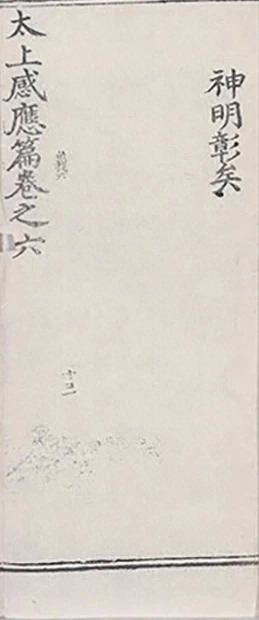 神明彰矣
太上感應篇卷之六